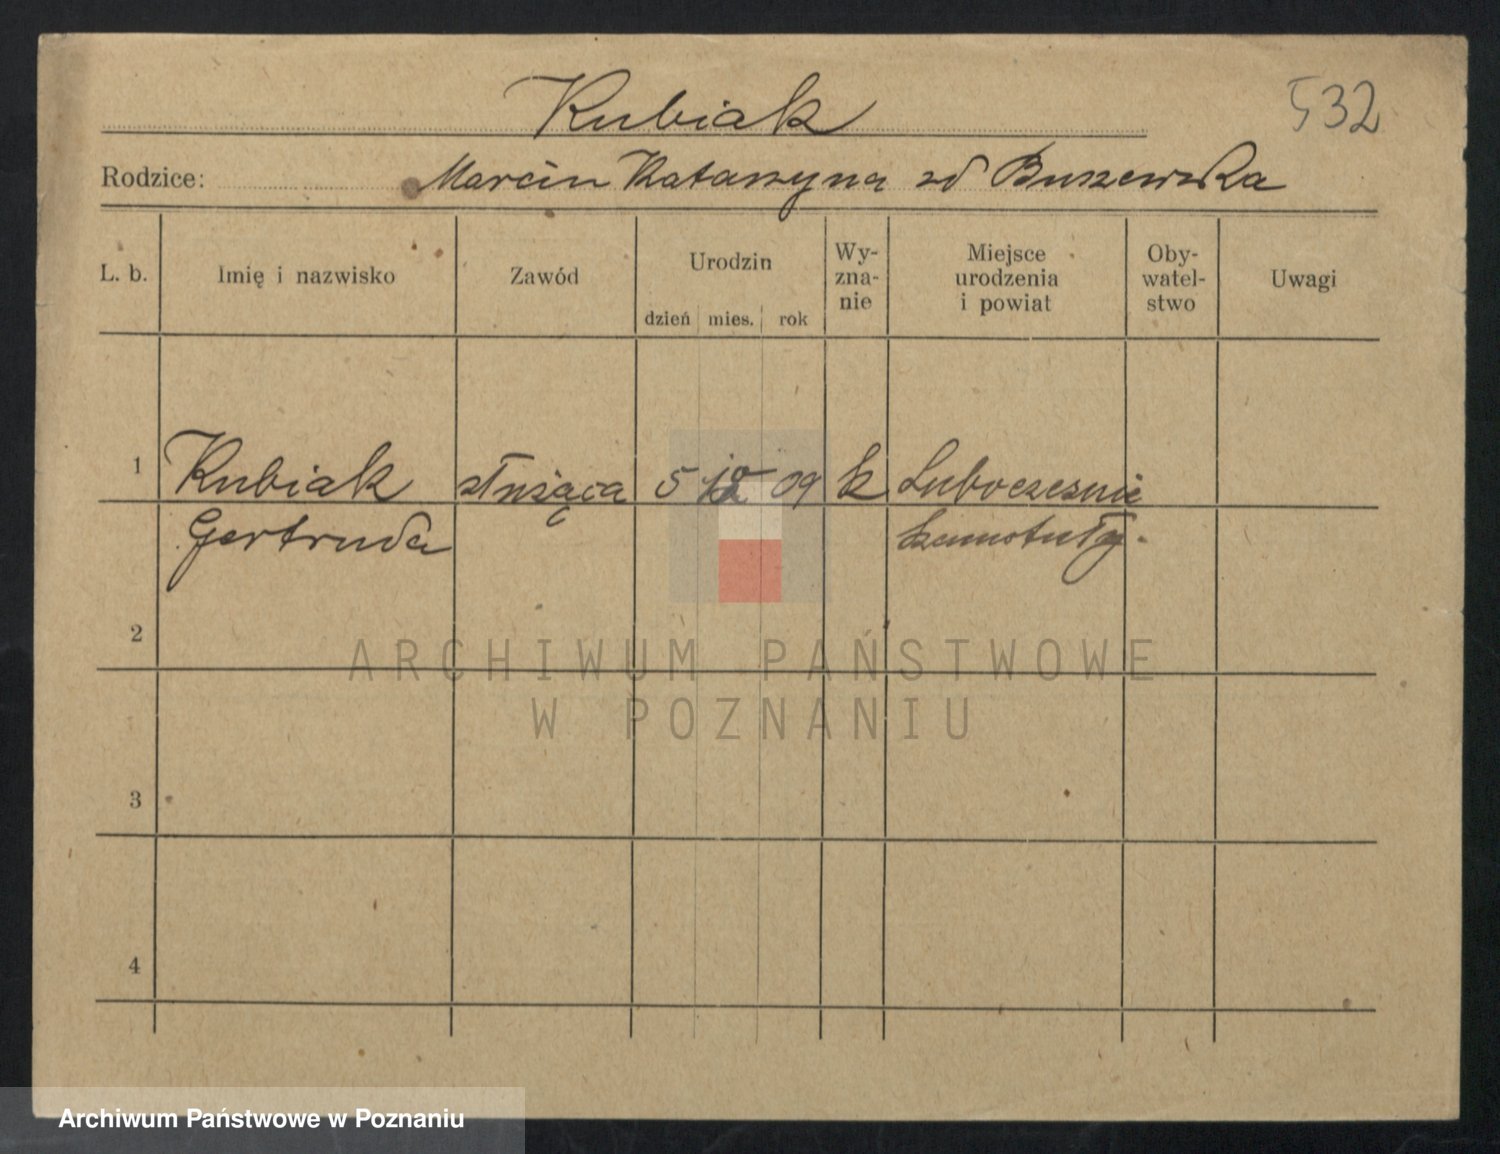 Kubiak
532
Rodzice: Marcin Katarzyna zd Buszewska
L. b.
Imię i nazwisko
Zawód
Urodzin
dzień mies. rok
Wy-
zna-
nie
Miejsce
urodzenia
i powiat
Oby-
watel-
stwo
Uwagi
1 Kubiak służąca 5 09 k
Gertruda
2
3
4
ARCHIWUM PAŃSTWOWE
W POZNANIU
Archiwum Państwowe w Poznaniu